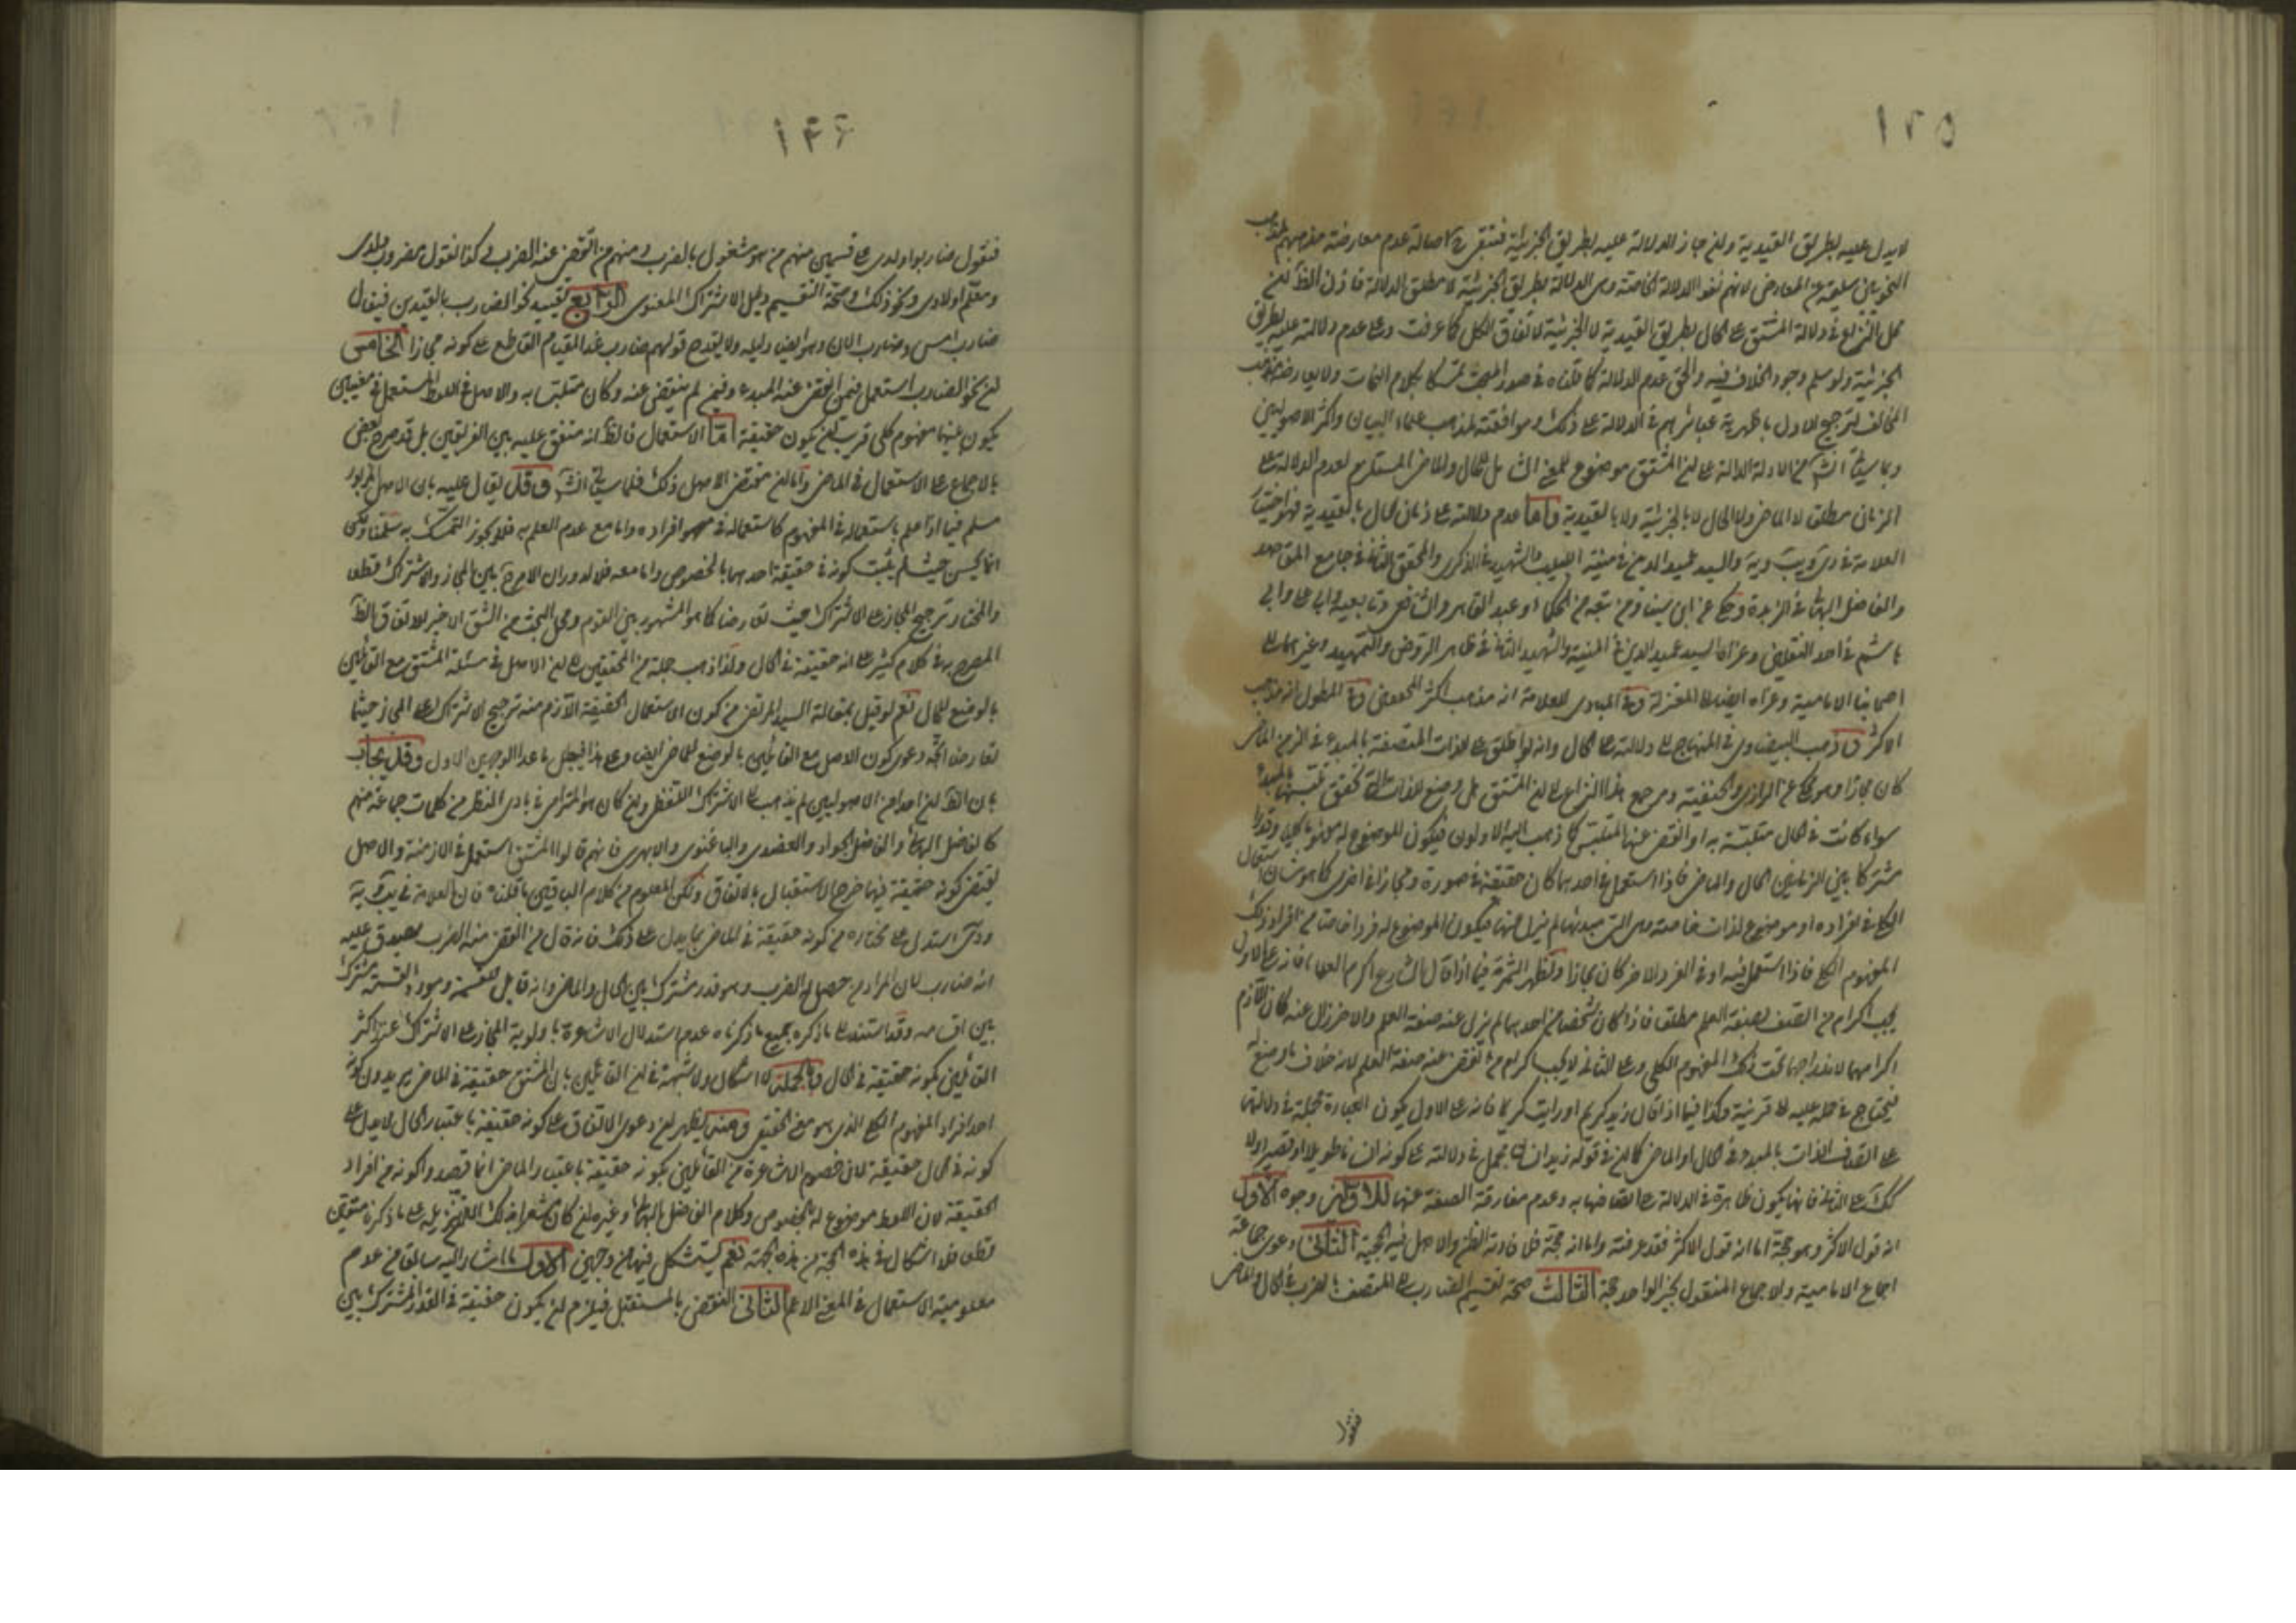 ١٢٥
لا يدل عليه بطريق القيدية ولئن جاز الدلالة عليه بطريق الجزئية فتبقى ح اصالة عدم معارضة مذهبهم لمذهب
النحويين سليمة عن المعارض لانهم نفوا الدلالة الخاصة وهى الدلالة بطريق الجزئية لا مطلق الدلالة فاذن الظ ان
محل النزاع فى دلالة المشتق على الحال بطريق القيدية لا الجزئية لاتفاق الكل كما عرفت وعلى عدم دلالته عليه بطريق
الجزئية ولو سلم وجود الخلاف فيه والحق عدم الدلالة كما قلناه فى صدر المبحث تمسكا بكلام النحات ولا يعارضه مذهب
المخالف لترجيح الاول باظهرية عباراتهم فى الدلالة على ذلك وموافقته لمذهب علماء البيان واكثر الاصوليين
وبما سيأتى من الادلة الدالة على ان المشتق موضوع للمعنى الشامل للحال والماضى المستلزم لعدم الدلالة على
الزمان مطلقا لا الماضى ولا الحال لا بالجزئية ولا بالقيدية واما عدم دلالته على زمان الحال بالقيدية فهو اختيار
العلامة فى يب ويه والسيد عميد الدين فى منية اللبيب والشهيد فى الذكرى والمحقق الثانى فى جامع المقاصد
والفاضل البهائى فى الزبدة وحكى عن ابن سينا ومن تبعه من الحكماء وعبد القاهر والشافعى وتابعيه وابى على وابى
هاشم فى احد النقلين وعزاه السيد عميد الدين فى المنية والشهيد الثانى فى ظاهر الروض والتمهيد وغيرهما الى
اصحابنا الامامية وعزاه ايضا الى المعتزلة وفى المبادى للعلامة انه مذهب اكثر المحققين وفى المطول انه مذهب
الاكثر وذهب البيضاوى فى المنهاج الى دلالته على الحال وانه لو اطلق على الذات المتصفة بالمبدء فى الزمن الماضى
كان مجازا وهو محكى عن الرازى والحنفية ومرجع هذا النزاع الى ان المشتق هل وضع للذات التى تحقق تلبسها بالمبدء
سواء كانت فى الحال متلبسة به او انقضى عنها التلبس كما ذهب اليه الاولون فيكون الموضوع له مفهوما كليا وقدرا
مشتركا بين الزمانين الحال والماضى فاذا استعمل فى احدهما كان حقيقة فى صورة ومجازا فى اخرى كما هو شان استعمال
الكلى فى افراده او موضوع لذات خاصة وهى التى مبدئها لم يزل عنها فيكون الموضوع له فردا خاصا من افراد ذلك
المفهوم الكلى فاذا استعمل فيه او فى الفرد الاخر كان مجازا وتظهر الثمرة فيما اذا قال الشارع اكرم العلماء فانه على الاول
يجب اكرام من اتصف بصفة العلم مطلقا فاذا كان شخصان احدهما لم يزل عنه صفة العلم والاخر زال عنه كان اللازم
اكرامهما لاندراجهما تحت ذلك المفهوم الكلى وعلى الثانى لا يجب اكرام من انقضى عنه صفة العلم لانه خلاف ما وضع له
فيحتاج فى حمله عليه الى قرينة وكذا فيما اذا قال زيد كريم او رايت كريما فانه على الاول يكون العبارة مجملة فى دلالتها
على اتصاف الذات بالمبدء فى الحال او الماضى كما ان فى قوله زيد انسان مجمل فى دلالته على كونه انسانا طويلا او قصيرا ولا
كك على الثانى فانها يكون ظاهرة فى الدلالة على اتصافها به وعدم مفارقة الصفة عنها للاولين وجوه الاول
انه قول الاكثر وهو حجة اما انه قول الاكثر فقد عرفته واما انه حجة فلافادته الظن والاصل فيه الحجية الثانى دعوى جماعة
اجماع الامامية والاجماع المنقول بخبر الواحد حجة الثالث صحة تقسيم الضارب الى المتصف بالضرب فى الحال والماضى
فنقول
١٢٦
فنقول ضاربوا اولادى على قسمين منهم من هو مشغول بالضرب ومنهم من انقضى عنه الضرب وكذا نقول مضروب ولدى
ومعلم اولادى ونحو ذلك وصحة التقسيم دليل الاشتراك المعنوى الرابع تقييد نحو الضارب بالقيدين فيقال
ضارب امس وضارب الان وهو ايضا دليله ولا يقدح قولهم ضارب غدا لقيام القاطع على كونه مجازا الخامس
ان نحو الضارب استعمل فيمن انقضى عنه المبدء وفيمن لم ينقض عنه وكان متلبسا به والاصل فى اللفظ المستعمل فى معنيين
يكون بينهما مفهوم كلى قريب ان يكون حقيقة اما الاستعمال فالظ انه متفق عليه بين الفريقين بل قد صرح بعض
بالاجماع على الاستعمال فى الماضى واما ان مقتضى الاصل ذلك فلما سيأتى وقد يقال عليه بان الاصل المزبور
مسلم فيما اذا علم باستعماله فى المفهوم كاستعماله فى افراده واما مع عدم العلم به فلا يجوز التمسك به سلمنا ولكن
انما يحسن حيث لم يثبت كونه فى حقيقة احدهما بالخصوص واما معه فلا لدوران الامر ح بين المجاز والاشتراك قطعا
والمختار ترجيح المجاز على الاشتراك حيث تعارضا كما هو المشهور بين القوم ومحل البحث من الشق الاخير للاتفاق الظ
المصرح به فى كلام كثير على انه حقيقة فى الحال ولذا ذهب جملة من المحققين الى ان الاصل فى مسئلة المشتق مع القائلين
بالوضع للحال نعم لو قيل بمقالة السيد المرتضى من كون الاستعمال الحقيقة اللازم منه ترجيح الاشتراك على المجاز حيثما
تعارضا اتجه دعوى كون الاصل مع القائلين بالوضع للماضى ايضا وعلى هذا فيبطل ما عدا الوجهين الاول وقد يجاب
بان الظ ان احدا من الاصوليين لم يذهب الى الاشتراك اللفظى وان كان هو المترائى فى بادى النظر من كلمات جماعة منهم
كالفاضل البهائى والفاضل الجواد والعضدى والباغنوى والابهرى فانهم قالوا المشتق استعمل فى الازمنة والاصل
يقتضى كونه حقيقة فيها خرج الاستقبال بالاتفاق ولكن المعلوم من كلام الباقين ما قلناه فان العلامة فى يب ويه
ودى استدل على مختاره من كونه حقيقة فى الماضى بما يدل على ذلك فانه قال من انقضى منه الضرب يصدق عليه
انه ضارب لان المراد من حصل له الضرب وهو قدر مشترك بين الحال والماضى وانه قابل للقسمة ومورد القسمة مشترك
بين اقسامه وقد استند الى ما ذكره جميع ما ذكرناه عدم استدلال الاشاعرة باولوية المجاز على الاشتراك عند اكثر
القائلين بكونه حقيقة فى الحال وبالجملة لا اشكال ولا شبهة فى ان القائلين بان المشتق حقيقة فى الماضى يريدون كونه
احد افراد المفهوم الكلى الذى هو معنى الحقيقى ومنه يظهر ان دعوى الاتفاق على كونه حقيقة باعتبار الحال لا يدل على
كونه فى الحال حقيقة لان خصوم الاشاعرة من القائلين بكونه حقيقة باعتبار الماضى انما قصدوا كونه من افراد
الحقيقة لان اللفظ موضوع له بالخصوص وكلام الفاضل البهائى وغيره ان كان مشعرا بذلك تنزيله على ما ذكرنا متعين
قطعا فلا اشكال فى هذه الحجة من هذه الجهة نعم يستشكل فيها من وجهين الاول ما اشار اليه سابقا من عدم
معلومية الاستعمال فى المعنى الاعم الثانى النقض بالمستقبل فيلزم ان يكون حقيقة فى القدر المشترك بين